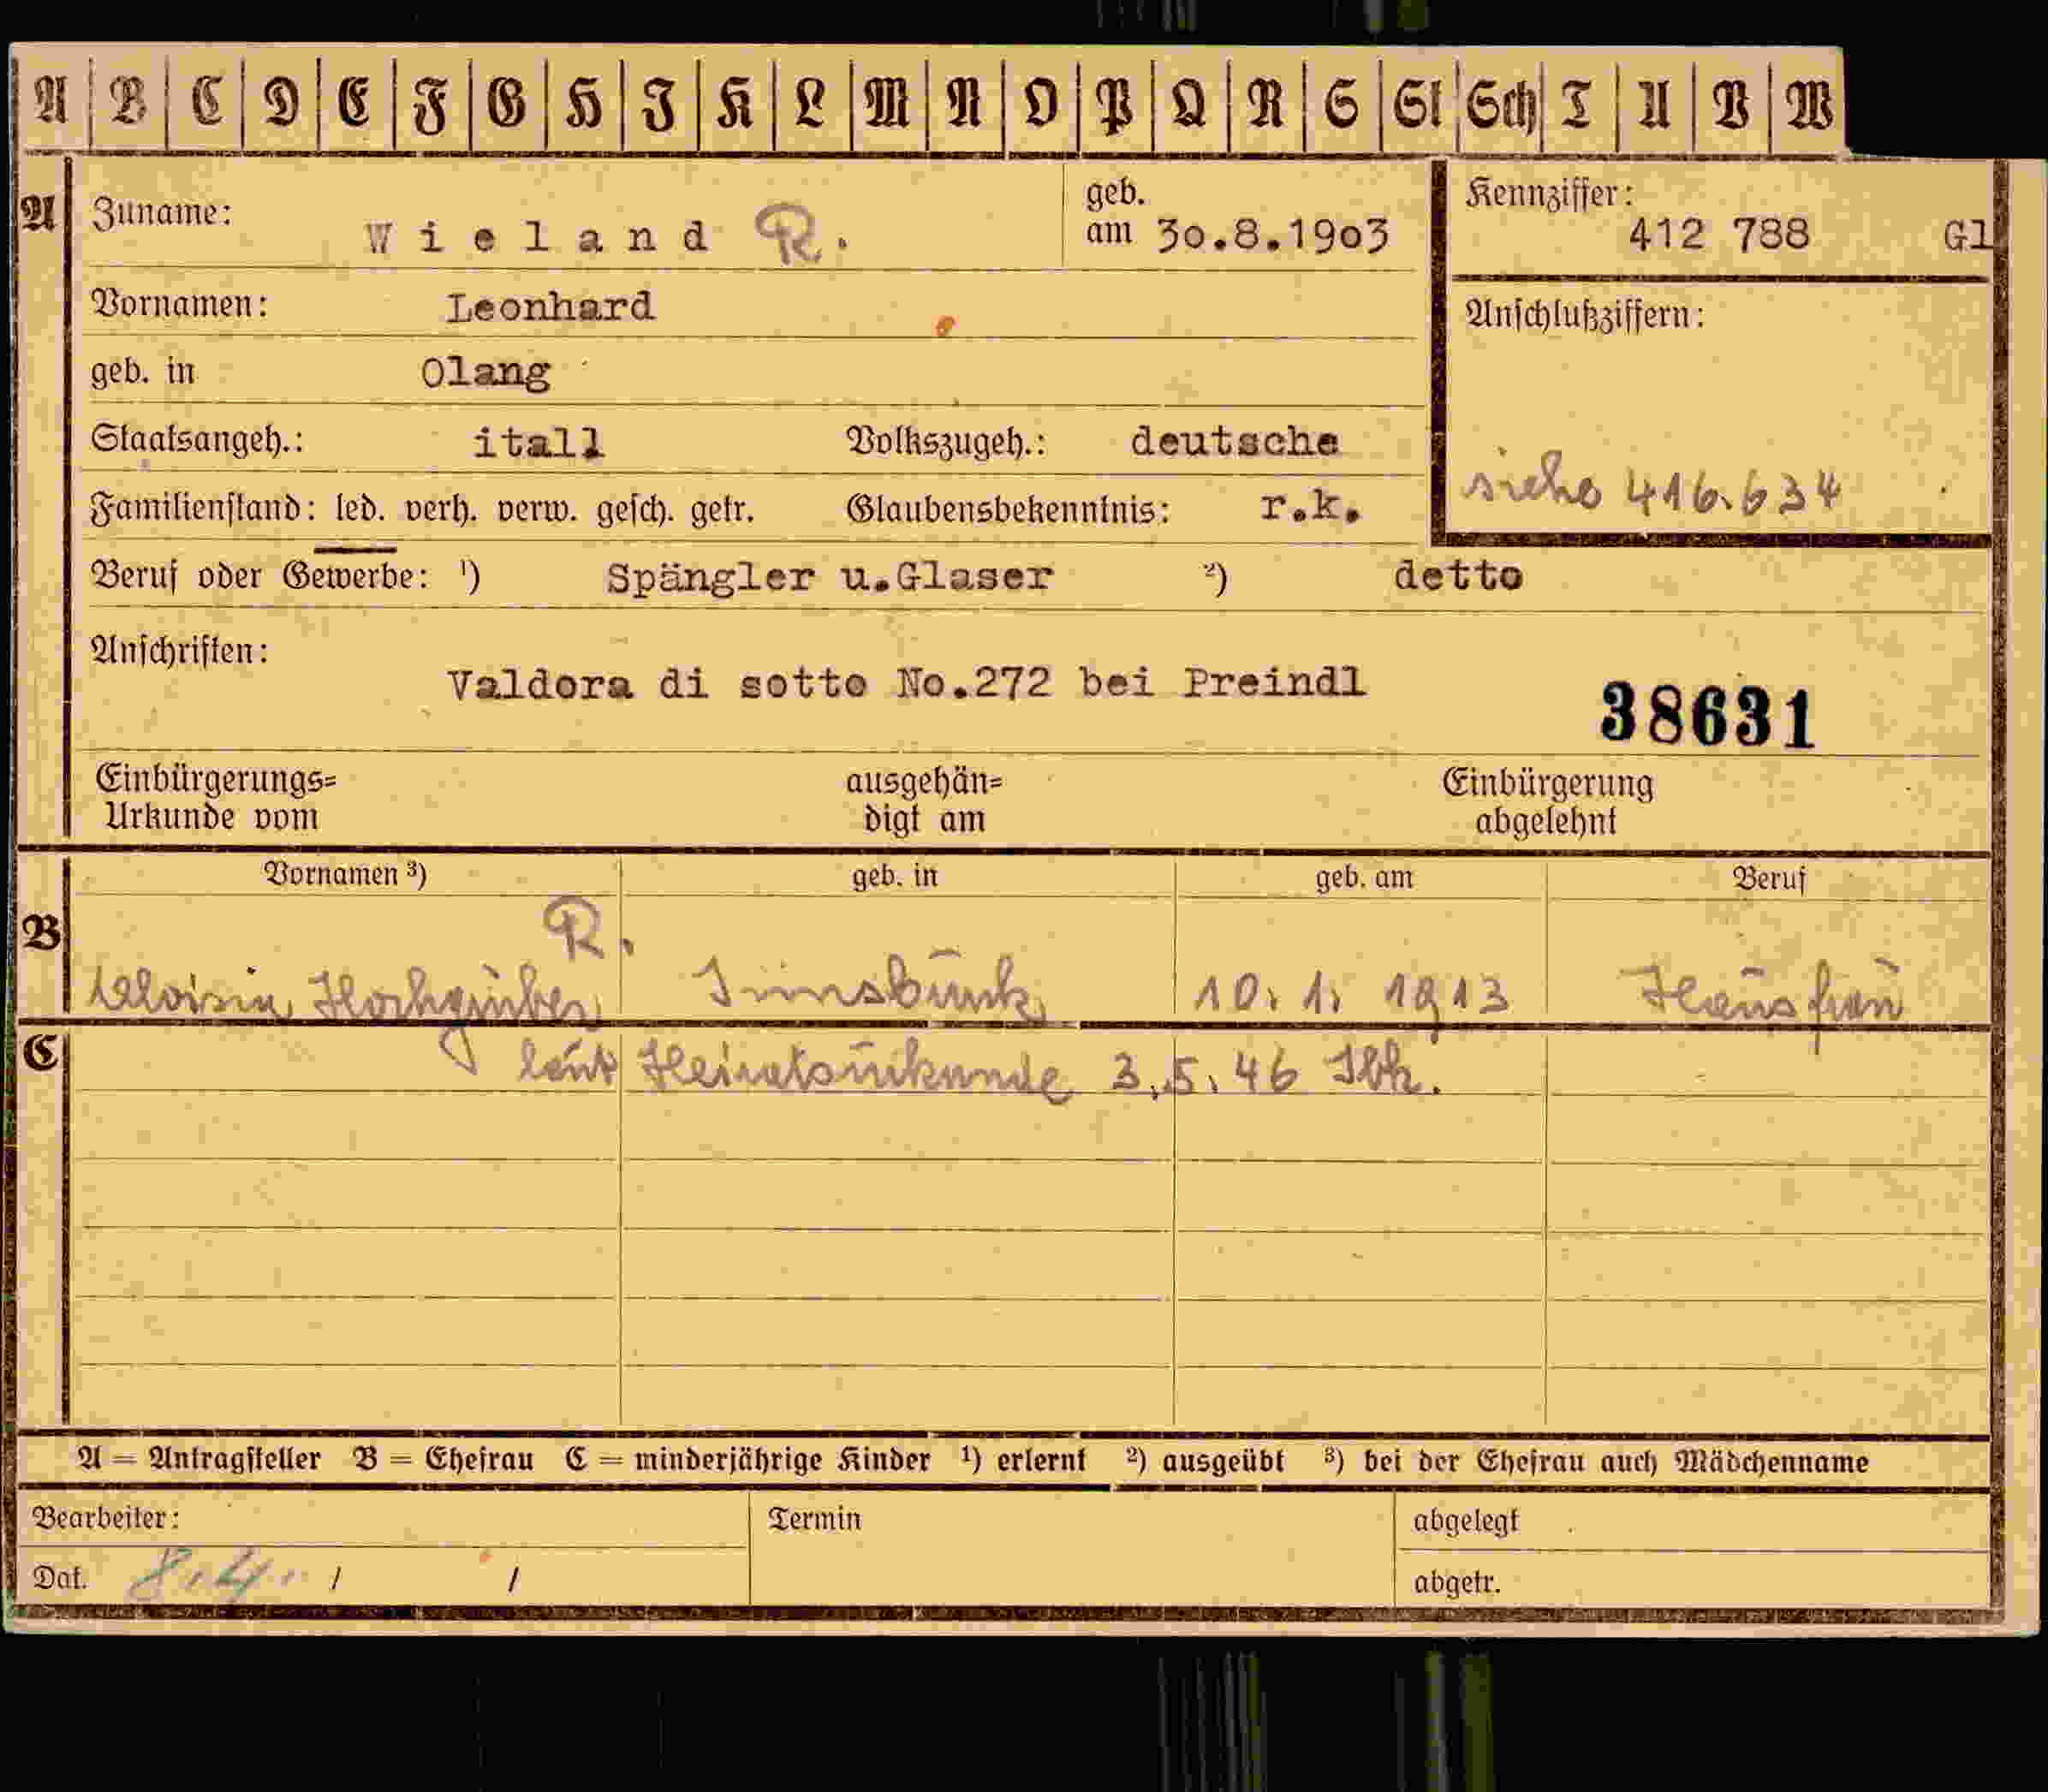 A B C D E F G H J K L M N O P Q R S St Sch T U V W
A Zuname: Wieland R. geb. am 30.8.1903 Kennziffer: 412 788 Gl
Vornamen: Leonhard Anschlußziffern:
geb. in Olang
Staatsangeh.: itall Volkszugeh.: deutsche
siehe 416.634
Familienstand: led. verh. verw. gesch. getr. Glaubensbekenntnis: r.k.
Beruf oder Gewerbe: ¹) Spängler u.Glaser ²) detto
Anschriften: Valdora di sotto No.272 bei Preindl
38631
Einbürgerungs= Urkunde vom ausgehän= digt am Einbürgerung abgelehnt
Vornamen ³) geb. in geb. am Beruf
R.
B Aloisia Hochgruber Innsbruck 10. 1. 1913 Hausfrau
C laut Heiratsurkunde 3.5.46 Ibk.
A = Antragsteller B = Ehefrau C = minderjährige Kinder ¹) erlernt ²) ausgeübt ³) bei der Ehefrau auch Mädchenname
Bearbeiter: Termin abgelegt
Dat. 8.4. / / abgetr.